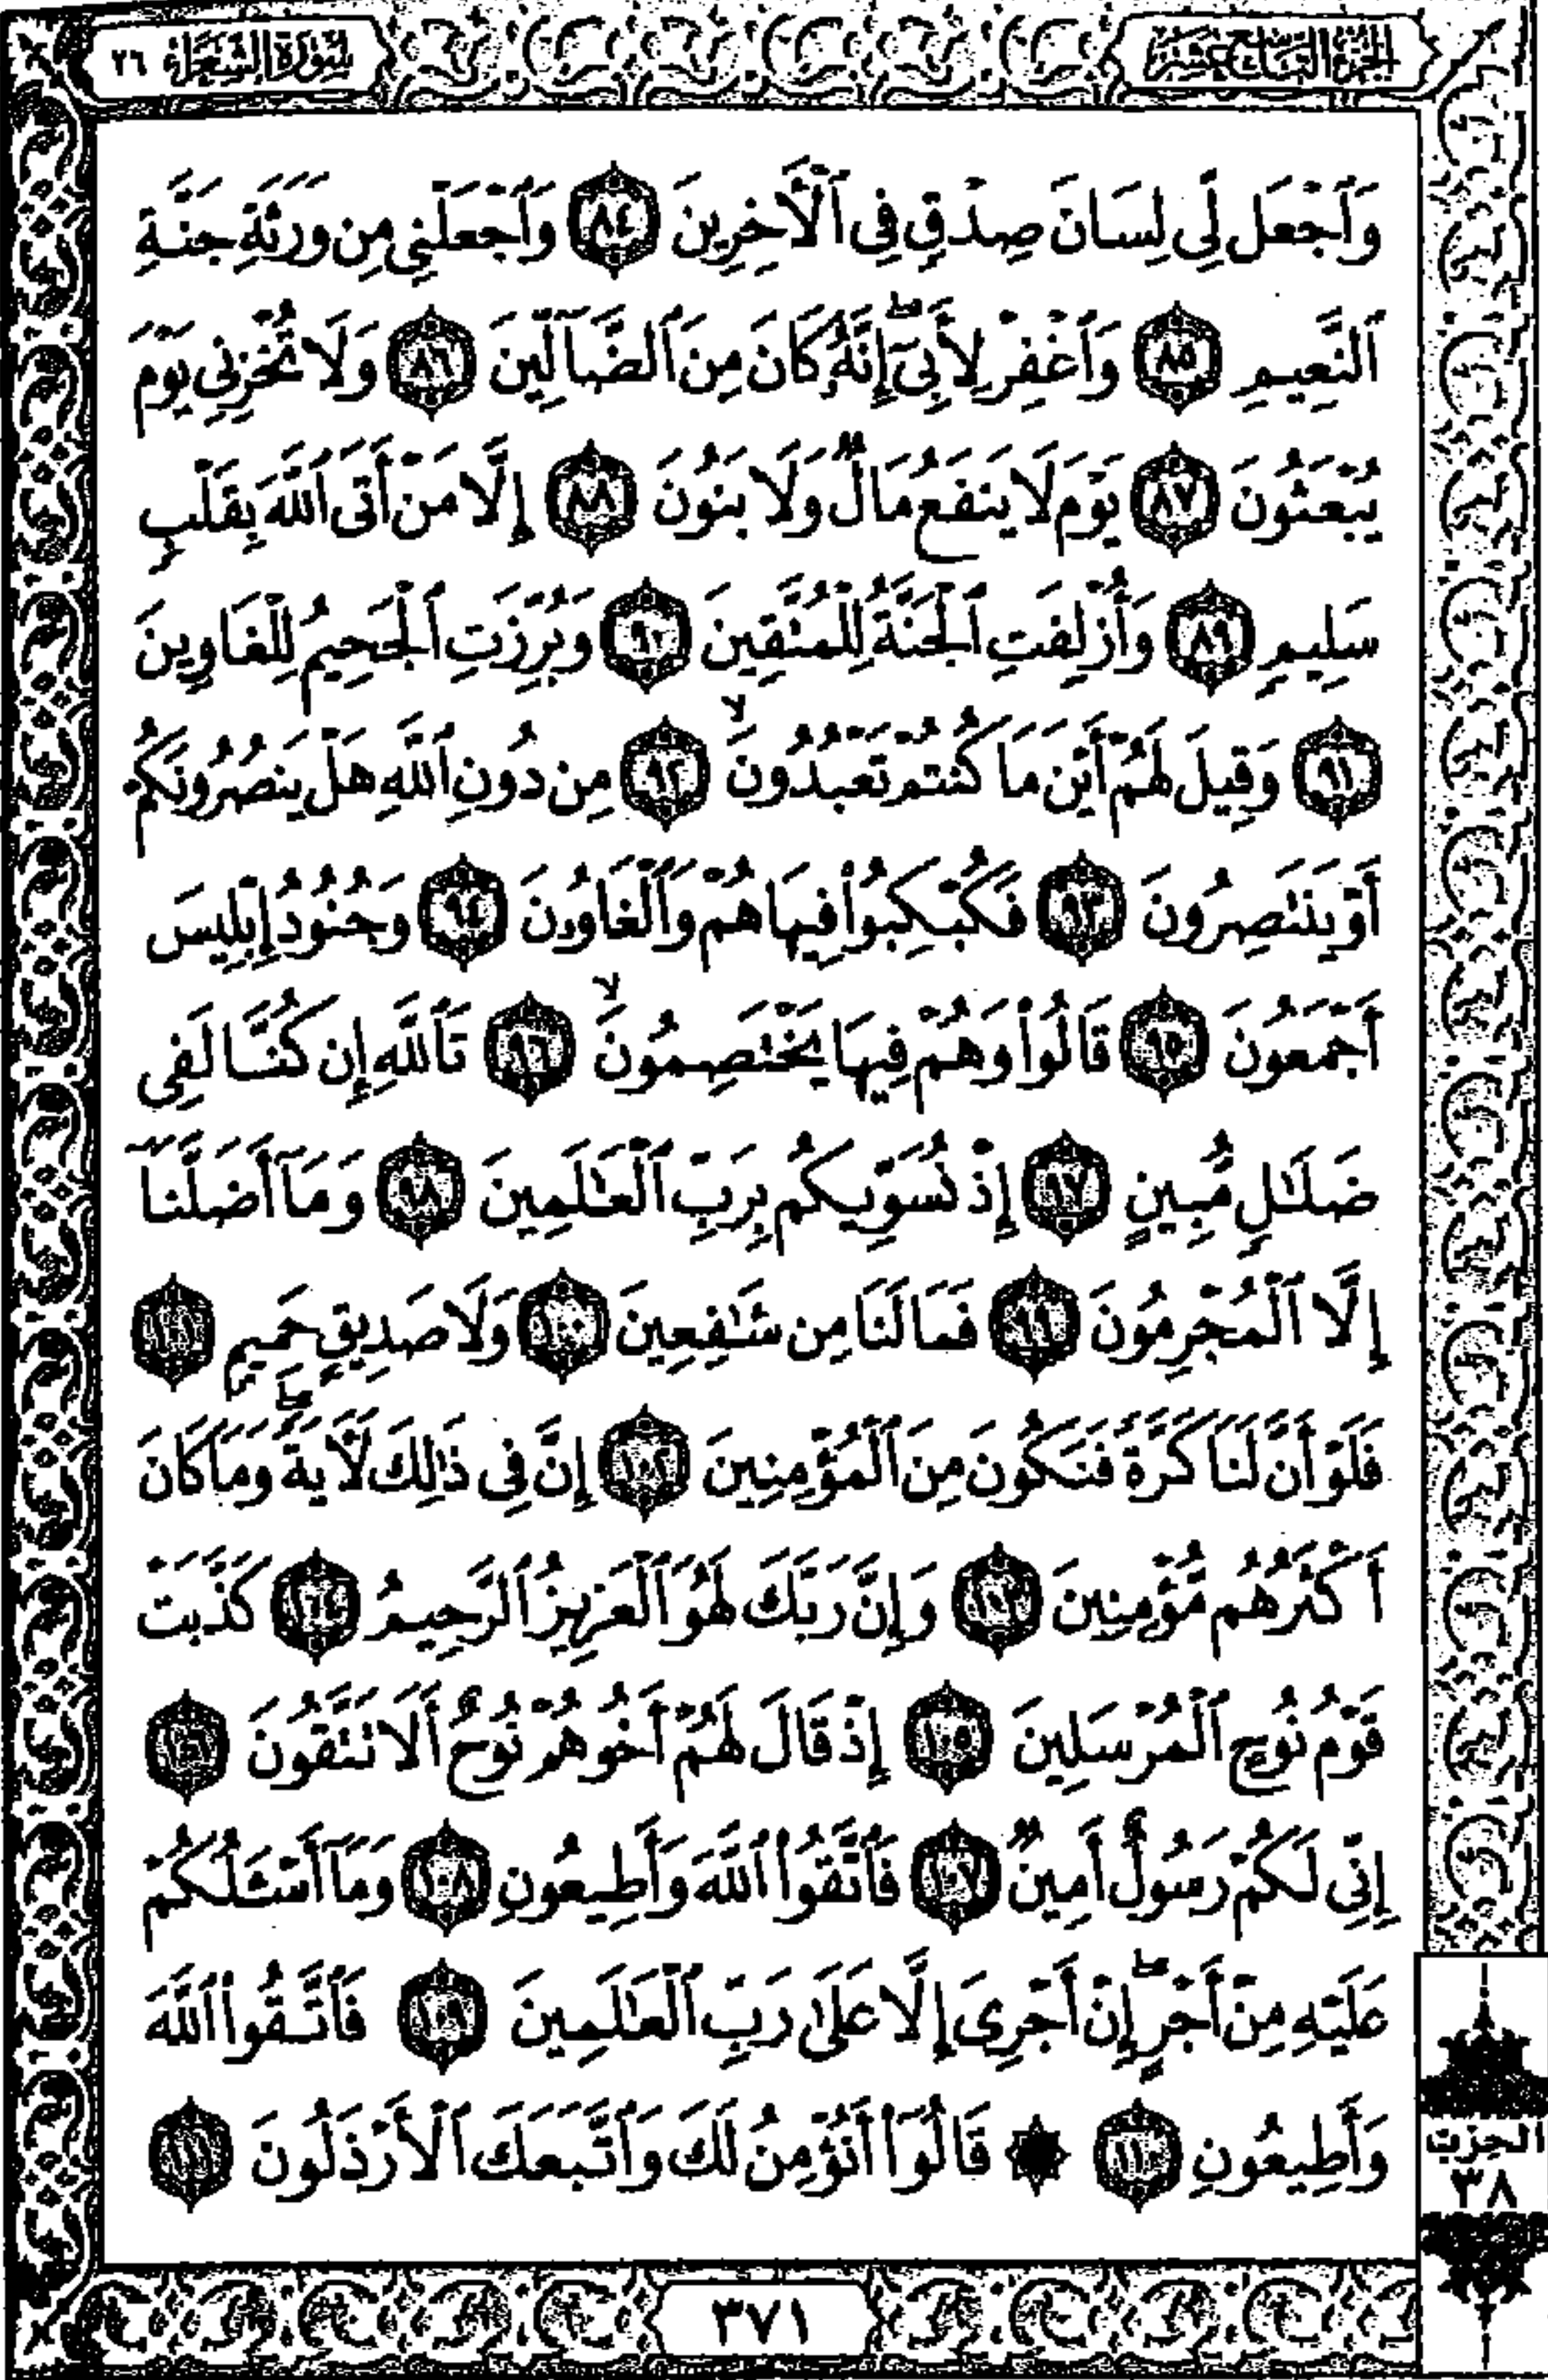 الجزء التاسع عشر
سورة الشعراء ٢٦
وَٱجْعَل لِّى لِسَانَ صِدْقٍ فِى ٱلْأَخِرِينَ ٨٤ وَٱجْعَلْنِى مِن وَرَثَةِ جَنَّةِ
ٱلنَّعِيمِ ٨٥ وَٱغْفِرْ لِأَبِىٓ ۖ إِنَّهُۥ كَانَ مِنَ ٱلضَّآلِّينَ ٨٦ وَلَا تُخْزِنِى يَوْمَ
يُبْعَثُونَ ٨٧ يَوْمَ لَا يَنفَعُ مَالٌ وَلَا بَنُونَ ٨٨ إِلَّا مَنْ أَتَى ٱللَّهَ بِقَلْبٍ
سَلِيمٍ ٨٩ وَأُزْلِفَتِ ٱلْجَنَّةُ لِلْمُتَّقِينَ ٩٠ وَبُرِّزَتِ ٱلْجَحِيمُ لِلْغَاوِينَ
٩١ وَقِيلَ لَهُمْ أَيْنَ مَا كُنتُمْ تَعْبُدُونَ ۙ ٩٢ مِن دُونِ ٱللَّهِ هَلْ يَنصُرُونَكُمْ
أَوْ يَنتَصِرُونَ ٩٣ فَكُبْكِبُوا۟ فِيهَا هُمْ وَٱلْغَاوُۥنَ ٩٤ وَجُنُودُ إِبْلِيسَ
أَجْمَعُونَ ٩٥ قَالُوا۟ وَهُمْ فِيهَا يَخْتَصِمُونَ ۙ ٩٦ تَٱللَّهِ إِن كُنَّا لَفِى
ضَلَٰلٍ مُّبِينٍ ٩٧ إِذْ نُسَوِّيكُم بِرَبِّ ٱلْعَٰلَمِينَ ٩٨ وَمَآ أَضَلَّنَآ
إِلَّا ٱلْمُجْرِمُونَ ٩٩ فَمَا لَنَا مِن شَٰفِعِينَ ١٠٠ وَلَا صَدِيقٍ حَمِيمٍ ١٠١
فَلَوْ أَنَّ لَنَا كَرَّةً فَنَكُونَ مِنَ ٱلْمُؤْمِنِينَ ١٠٢ إِنَّ فِى ذَٰلِكَ لَأَيَةً ۖ وَمَا كَانَ
أَكْثَرُهُم مُّؤْمِنِينَ ١٠٣ وَإِنَّ رَبَّكَ لَهُوَ ٱلْعَزِيزُ ٱلرَّحِيمُ ١٠٤ كَذَّبَتْ
قَوْمُ نُوحٍ ٱلْمُرْسَلِينَ ١٠٥ إِذْ قَالَ لَهُمْ أَخُوهُمْ نُوحٌ أَلَا تَتَّقُونَ ١٠٦
إِنِّى لَكُمْ رَسُولٌ أَمِينٌ ١٠٧ فَٱتَّقُوا۟ ٱللَّهَ وَأَطِيعُونِ ١٠٨ وَمَآ أَسْـَٔلُكُمْ
عَلَيْهِ مِنْ أَجْرٍ ۖ إِنْ أَجْرِىَ إِلَّا عَلَىٰ رَبِّ ٱلْعَٰلَمِينَ ١٠٩ فَٱتَّقُوا۟ ٱللَّهَ
وَأَطِيعُونِ ١١٠ ۞ قَالُوٓا۟ أَنُؤْمِنُ لَكَ وَٱتَّبَعَكَ ٱلْأَرْذَلُونَ ١١١
الحزب
٣٨
٣٧١